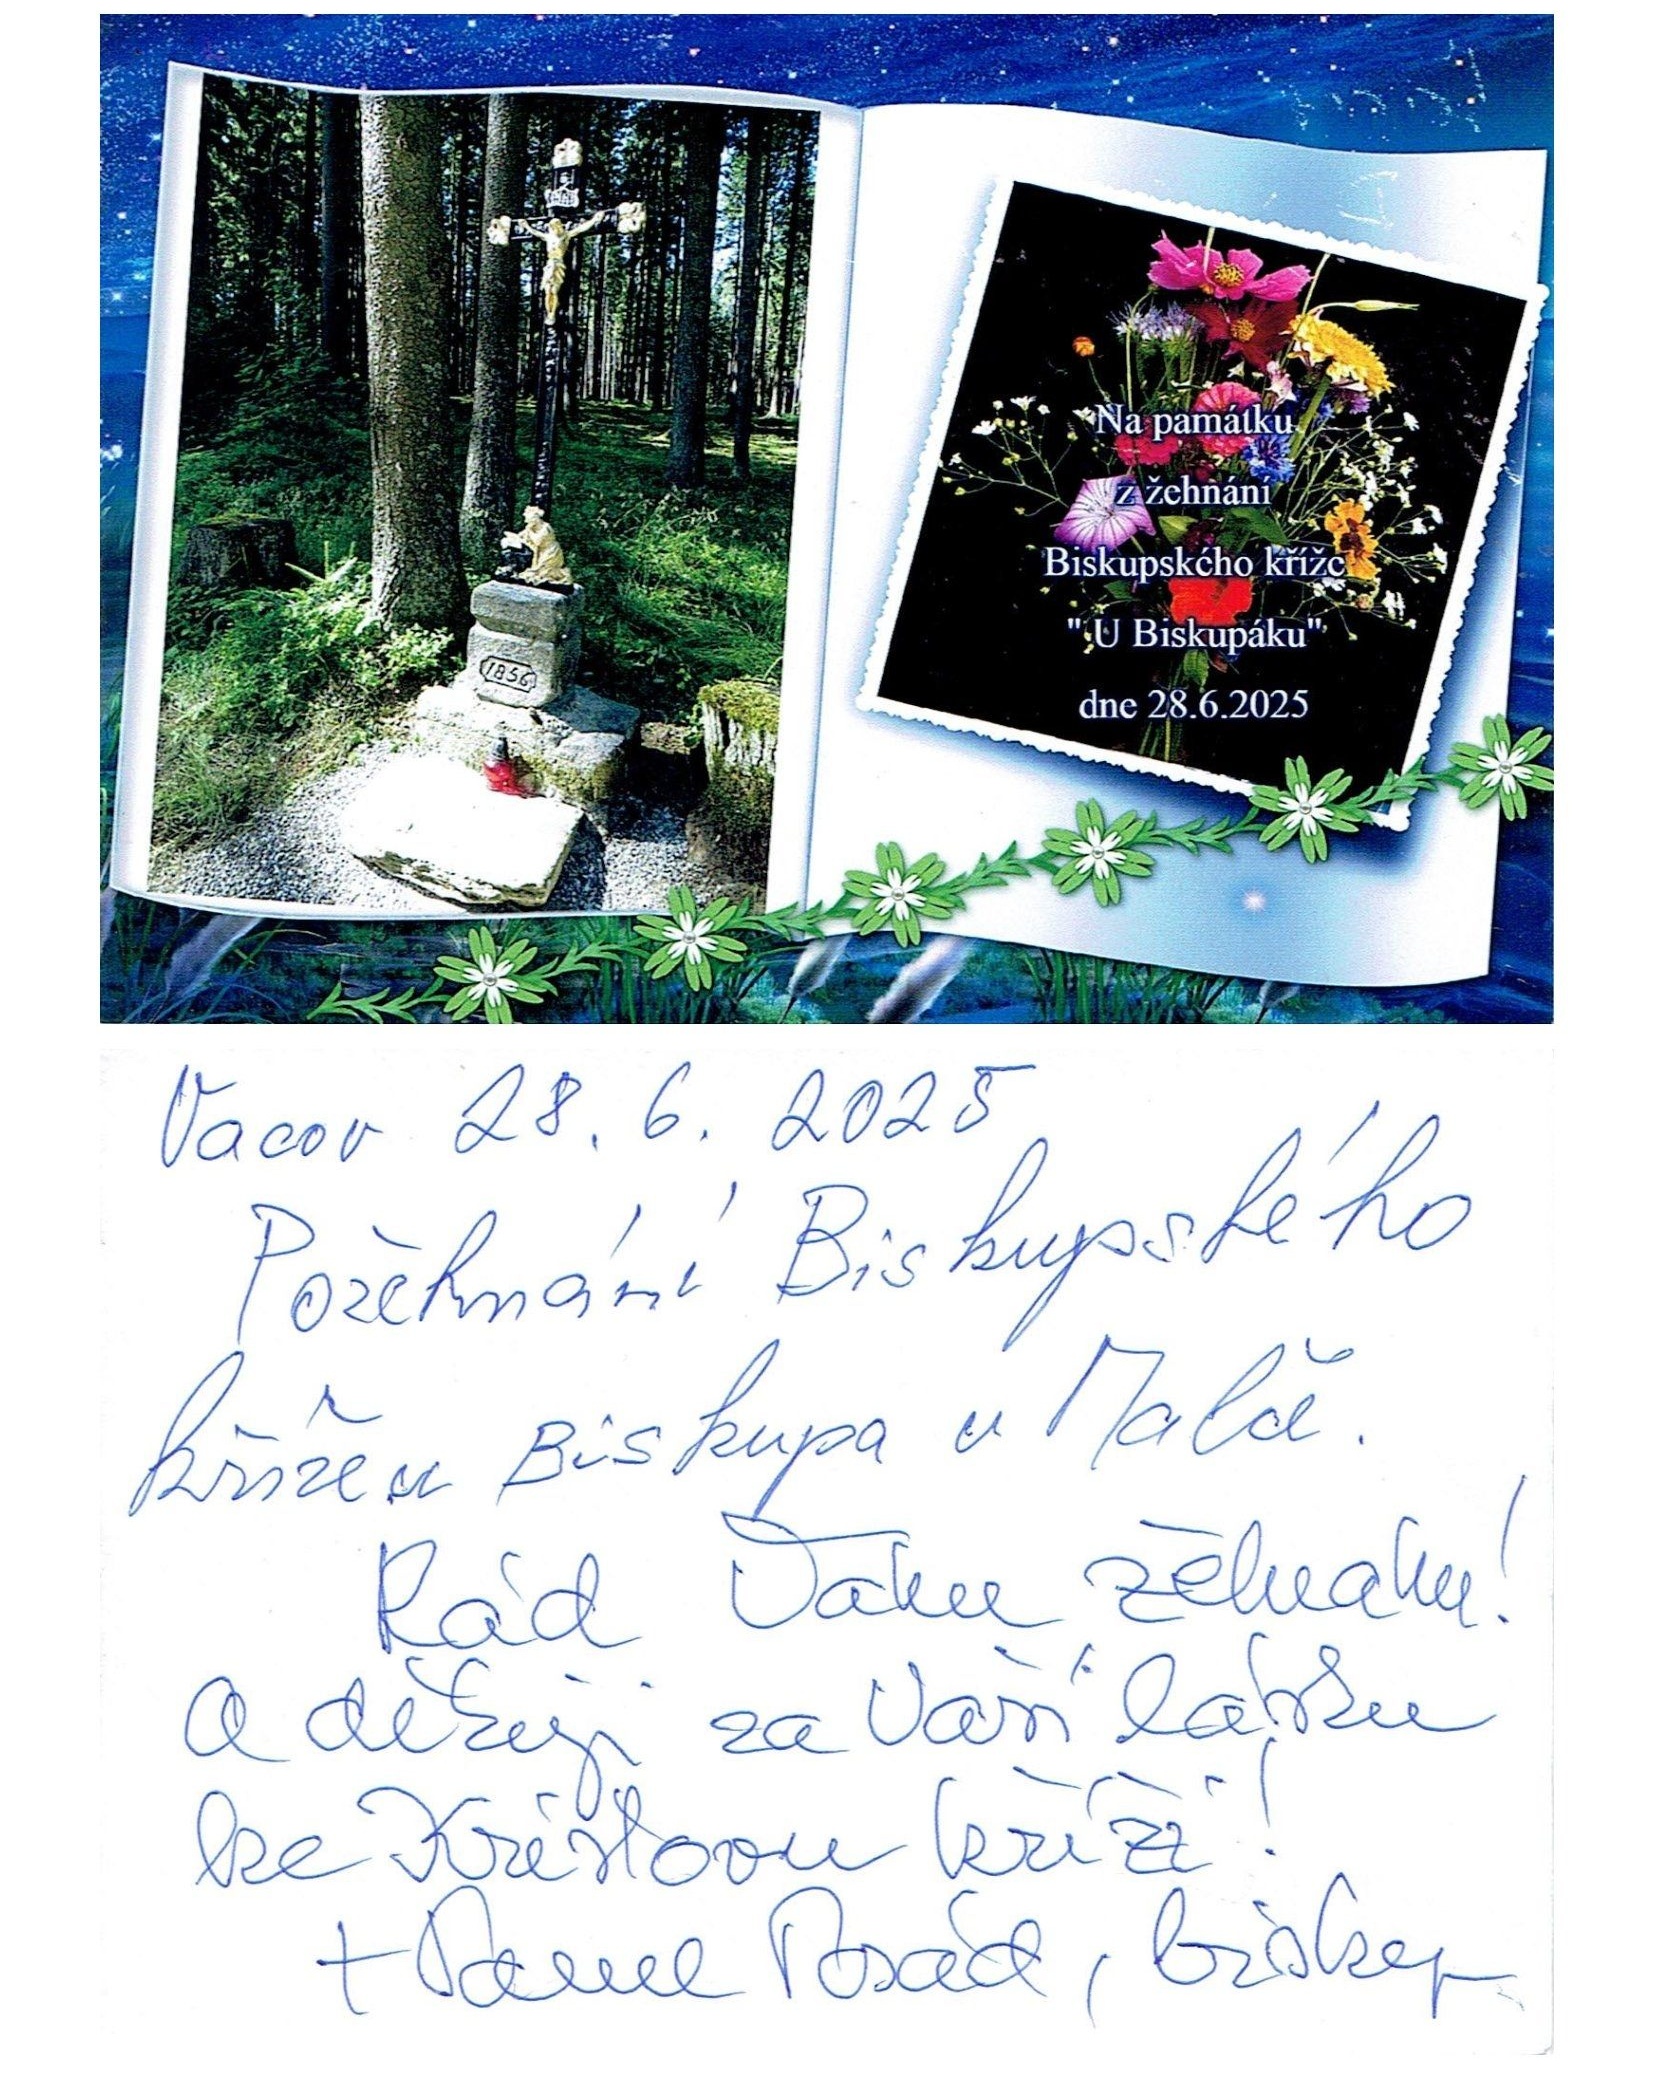 1856
Na památku
z žehnání
Biskupského kříže
" U Biskupáku"
dne 28.6.2025
Vacov 28. 6. 2025
Požehnání Biskupského
kříže u Biskupa u Malče.
Rád Vám žehnám!
a děkuji za Vaši lásku
ke Kristovu kříži!
+ Pavel Posád, biskup